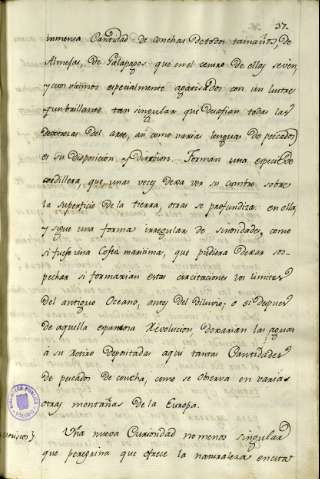 37.
inmensa Cantidad de conchas de todos tamaños, de
Almejas, de Galapagos que en el centro de ellos se ven,
y con visivos especialmente agraciados con un lustre
quebrillante tan singular que desafian todas las
del arte, asi como varias lenguas de pescados
es su disposicion y duracion. Forman una especie de
cordillera, que unas veces dexa ver su centro sobre
la superficie de la tierra, otras se profundiza en ella
y sigue una forma irregular de sinuosidades, como
si fuese una Costa maritima, que pudiera dexar sos-
pechar si formarian estas los limites
del antiguo Oceano, antes del diluvio; o si despues
de aquella espantosa Revolucion dexarian las aguas
á su retiro depositadas aqui tantas Cantidades
de pescados de concha, como se observa en varias
otras montañas de la Europa.
Una nueva Curiosidad no menos singular
que peregrina que ofrece la naturaleza en esta